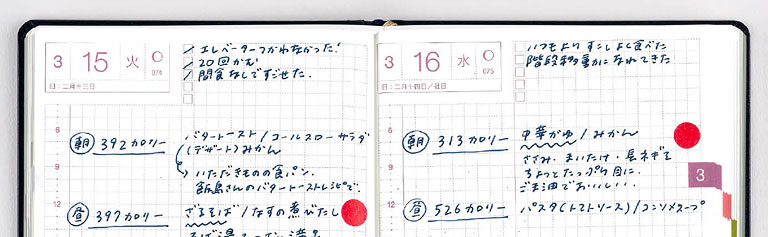 3 15 火 074
旧:二月十三日
エレベーターつかわなかった!
20回かむ
間食なしですごせた.
6
朝 392カロリー
バタートースト/コールスローサラダ
(デザート)みかん
9
いただきものの食パン.
飯島さんのバタートーストレシピで.
12
昼 397カロリー
ざるそば/なすの煮びたし
3 16 水 075
旧:二月十四日/社日
いつもより すこしよく食べた
階段移動になれてきた
6
朝 313カロリー
中華がゆ/みかん
ささみ・まいたけ・長ネギを
ちょっとたっぷり目に.
9
ごま油でおいしい.
3
12
昼 526カロリー
パスタ(トマトソース)/コンソメスープ